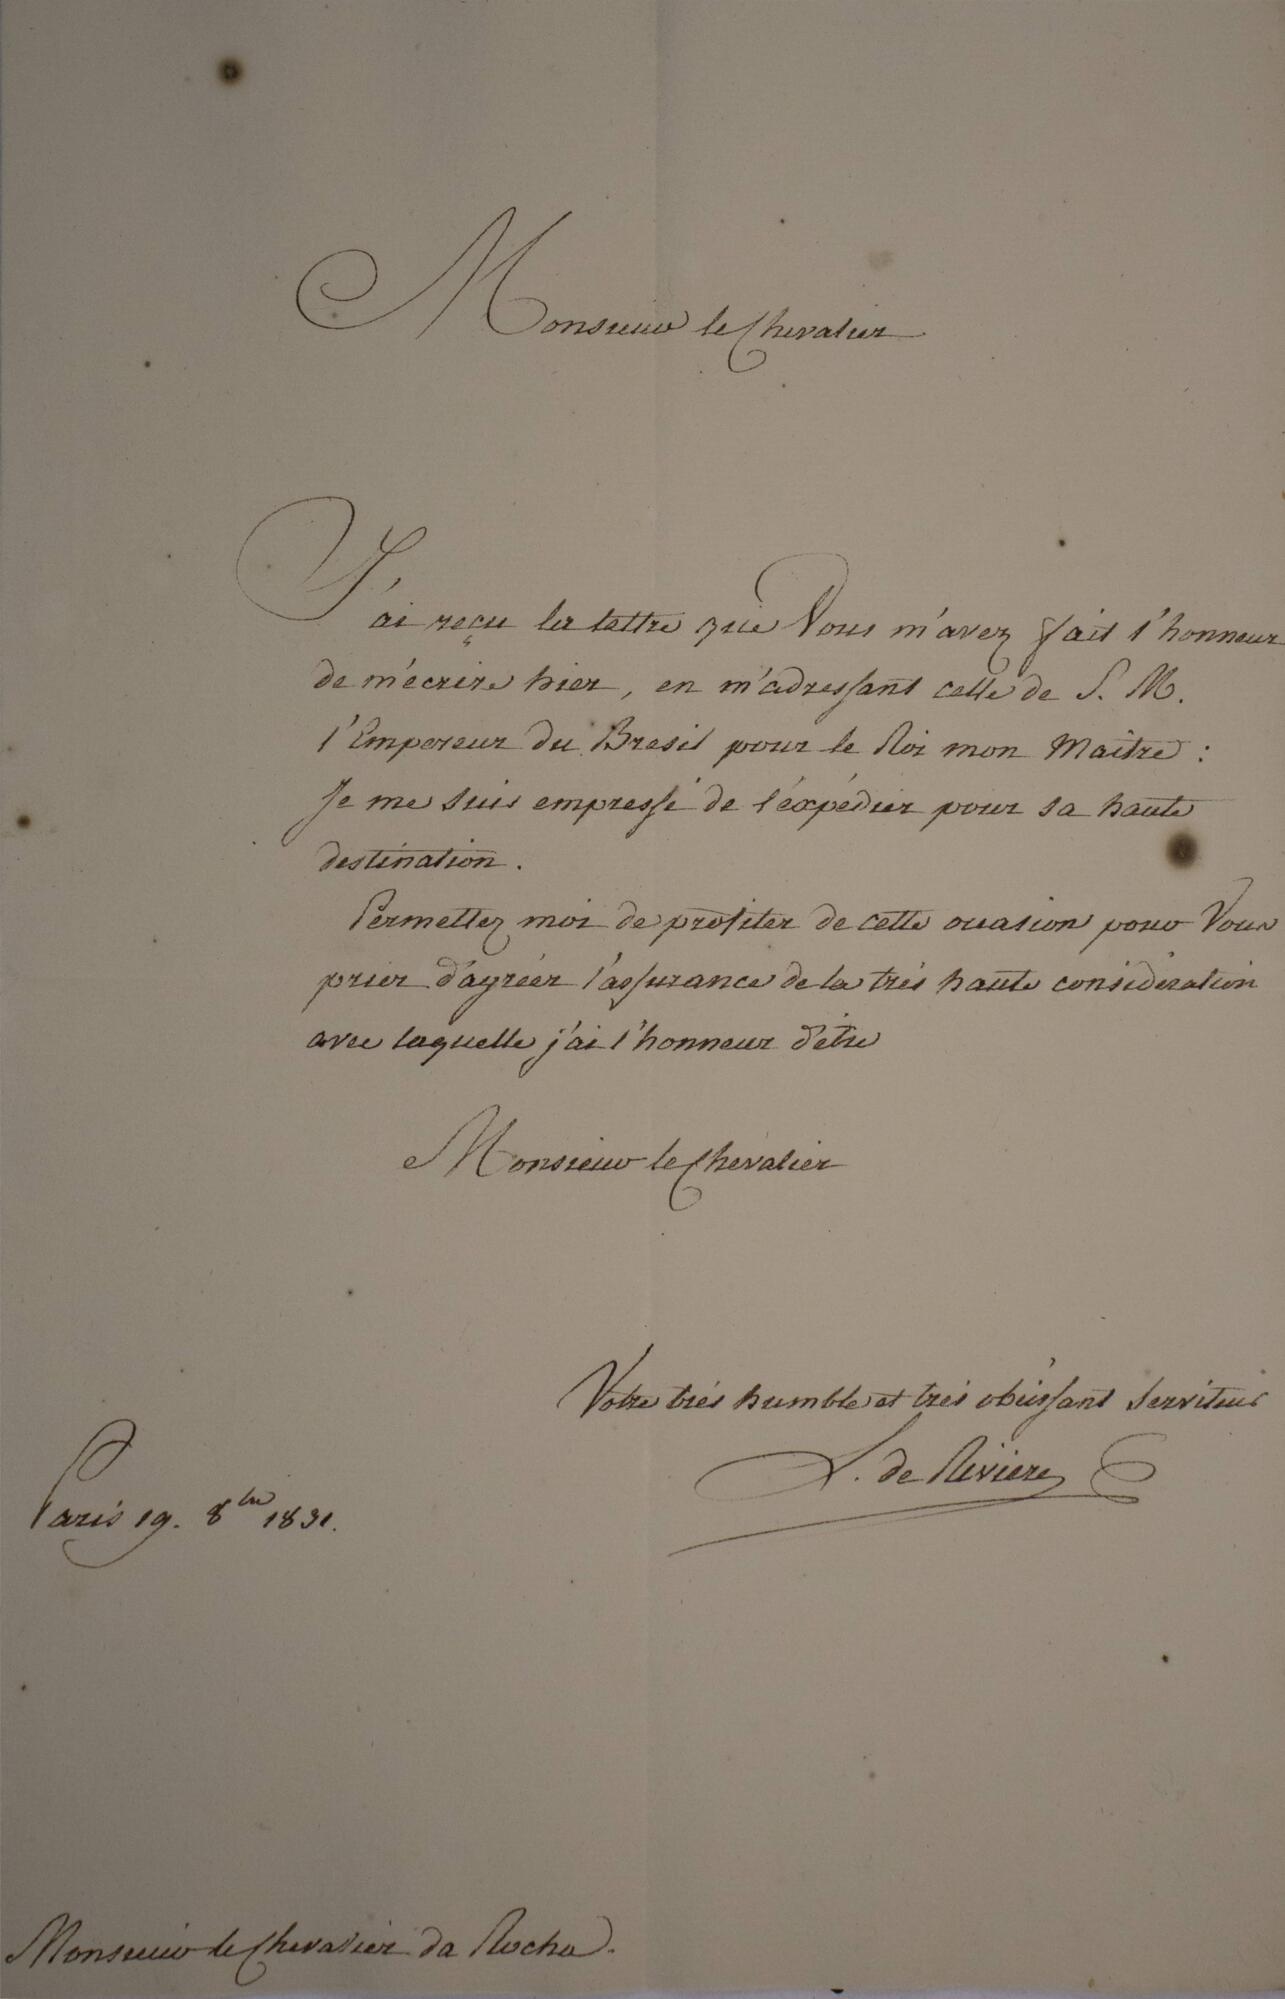 Monsieur le Chevalier
J'ai reçu la lettre que Vous m'avez fait l'honneur
de m'écrire hier, en m'adressant celle de S. M.
l'Empereur du Bresil pour le Roi mon Maître :
Je me suis empressé de l'éxpédier pour sa haute
destination.
Permettez moi de profiter de cette occasion pour Vous
prier d'agréer l'assurance de la trés haute considération
avec laquelle j'ai l'honneur d'être
Monsieur le Chevalier
Votre trés humble et trés obéissant Serviteur
L. de Rivière
Paris 19. 8bre 1831.
Monsieur le Chevalier da Rocha.